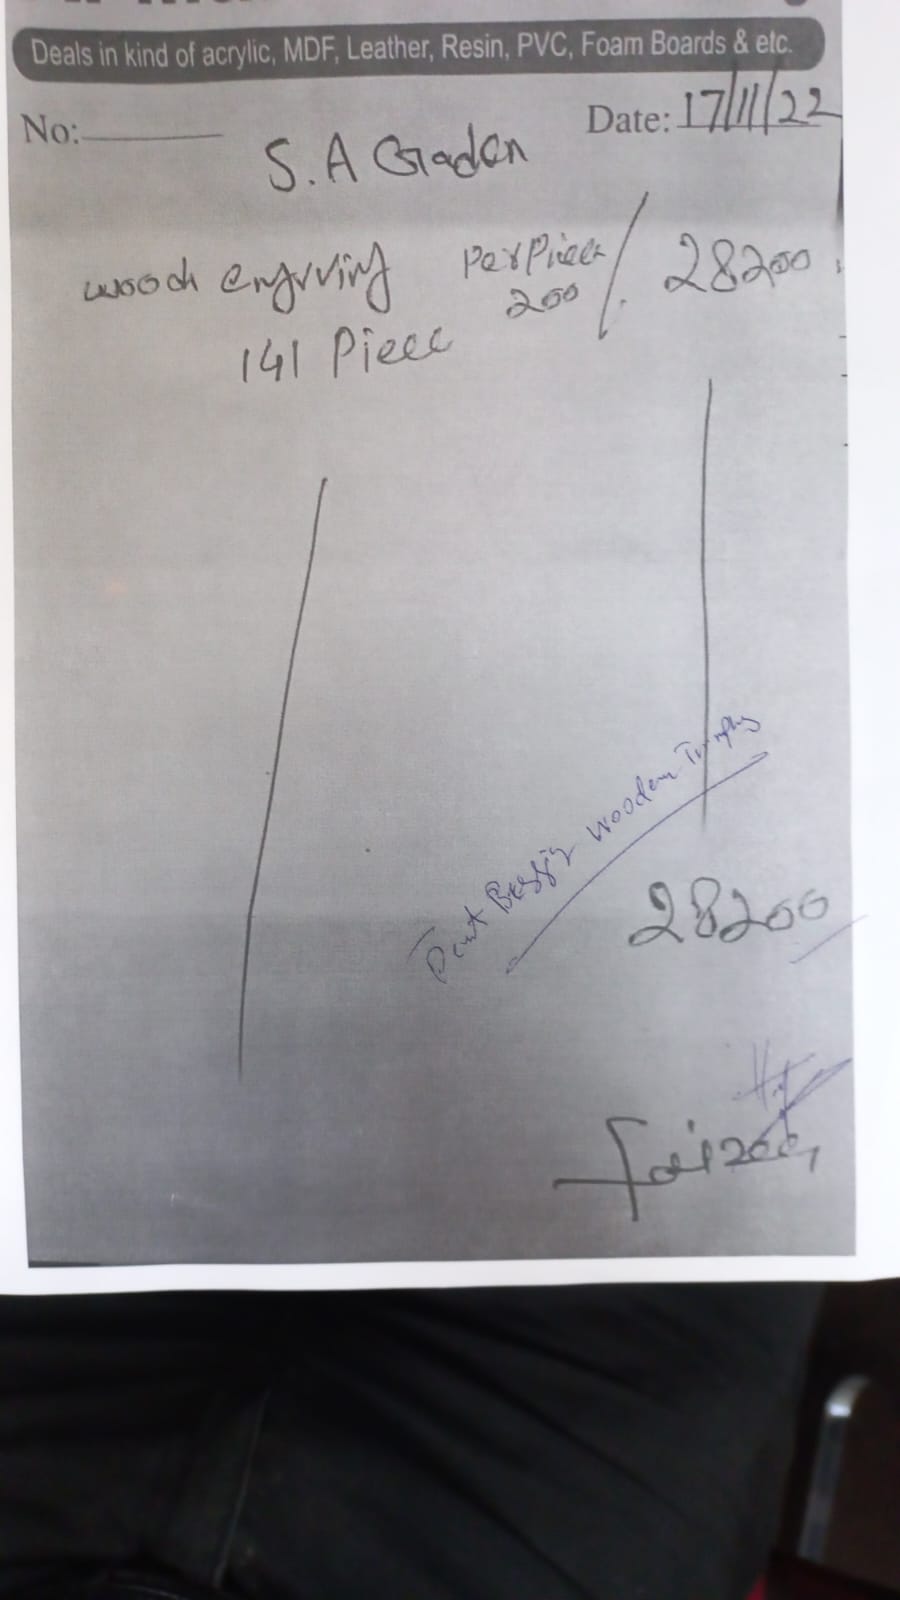 Deals in kind of acrylic, MDF, Leather, Resin, PVC, Foam Boards & etc.
No:
Date: 17/11/22
S.A Graden
wooch engrving Per Piece 200 / 28200
141 Piece
wooden Trophy
28200
faizan